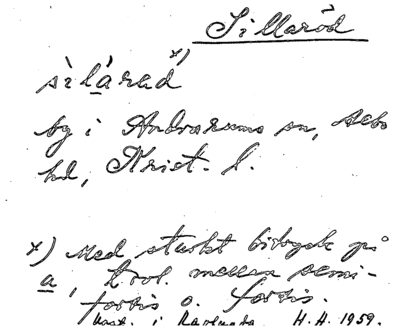 Sillaröd
sìlárad x)
by i Andrarums sn, Albo
hd, Krist. l.
x) Med starkt bitryck på
a, trol. mellan semi-
fortis o. fortis.
i H.H. 1959.